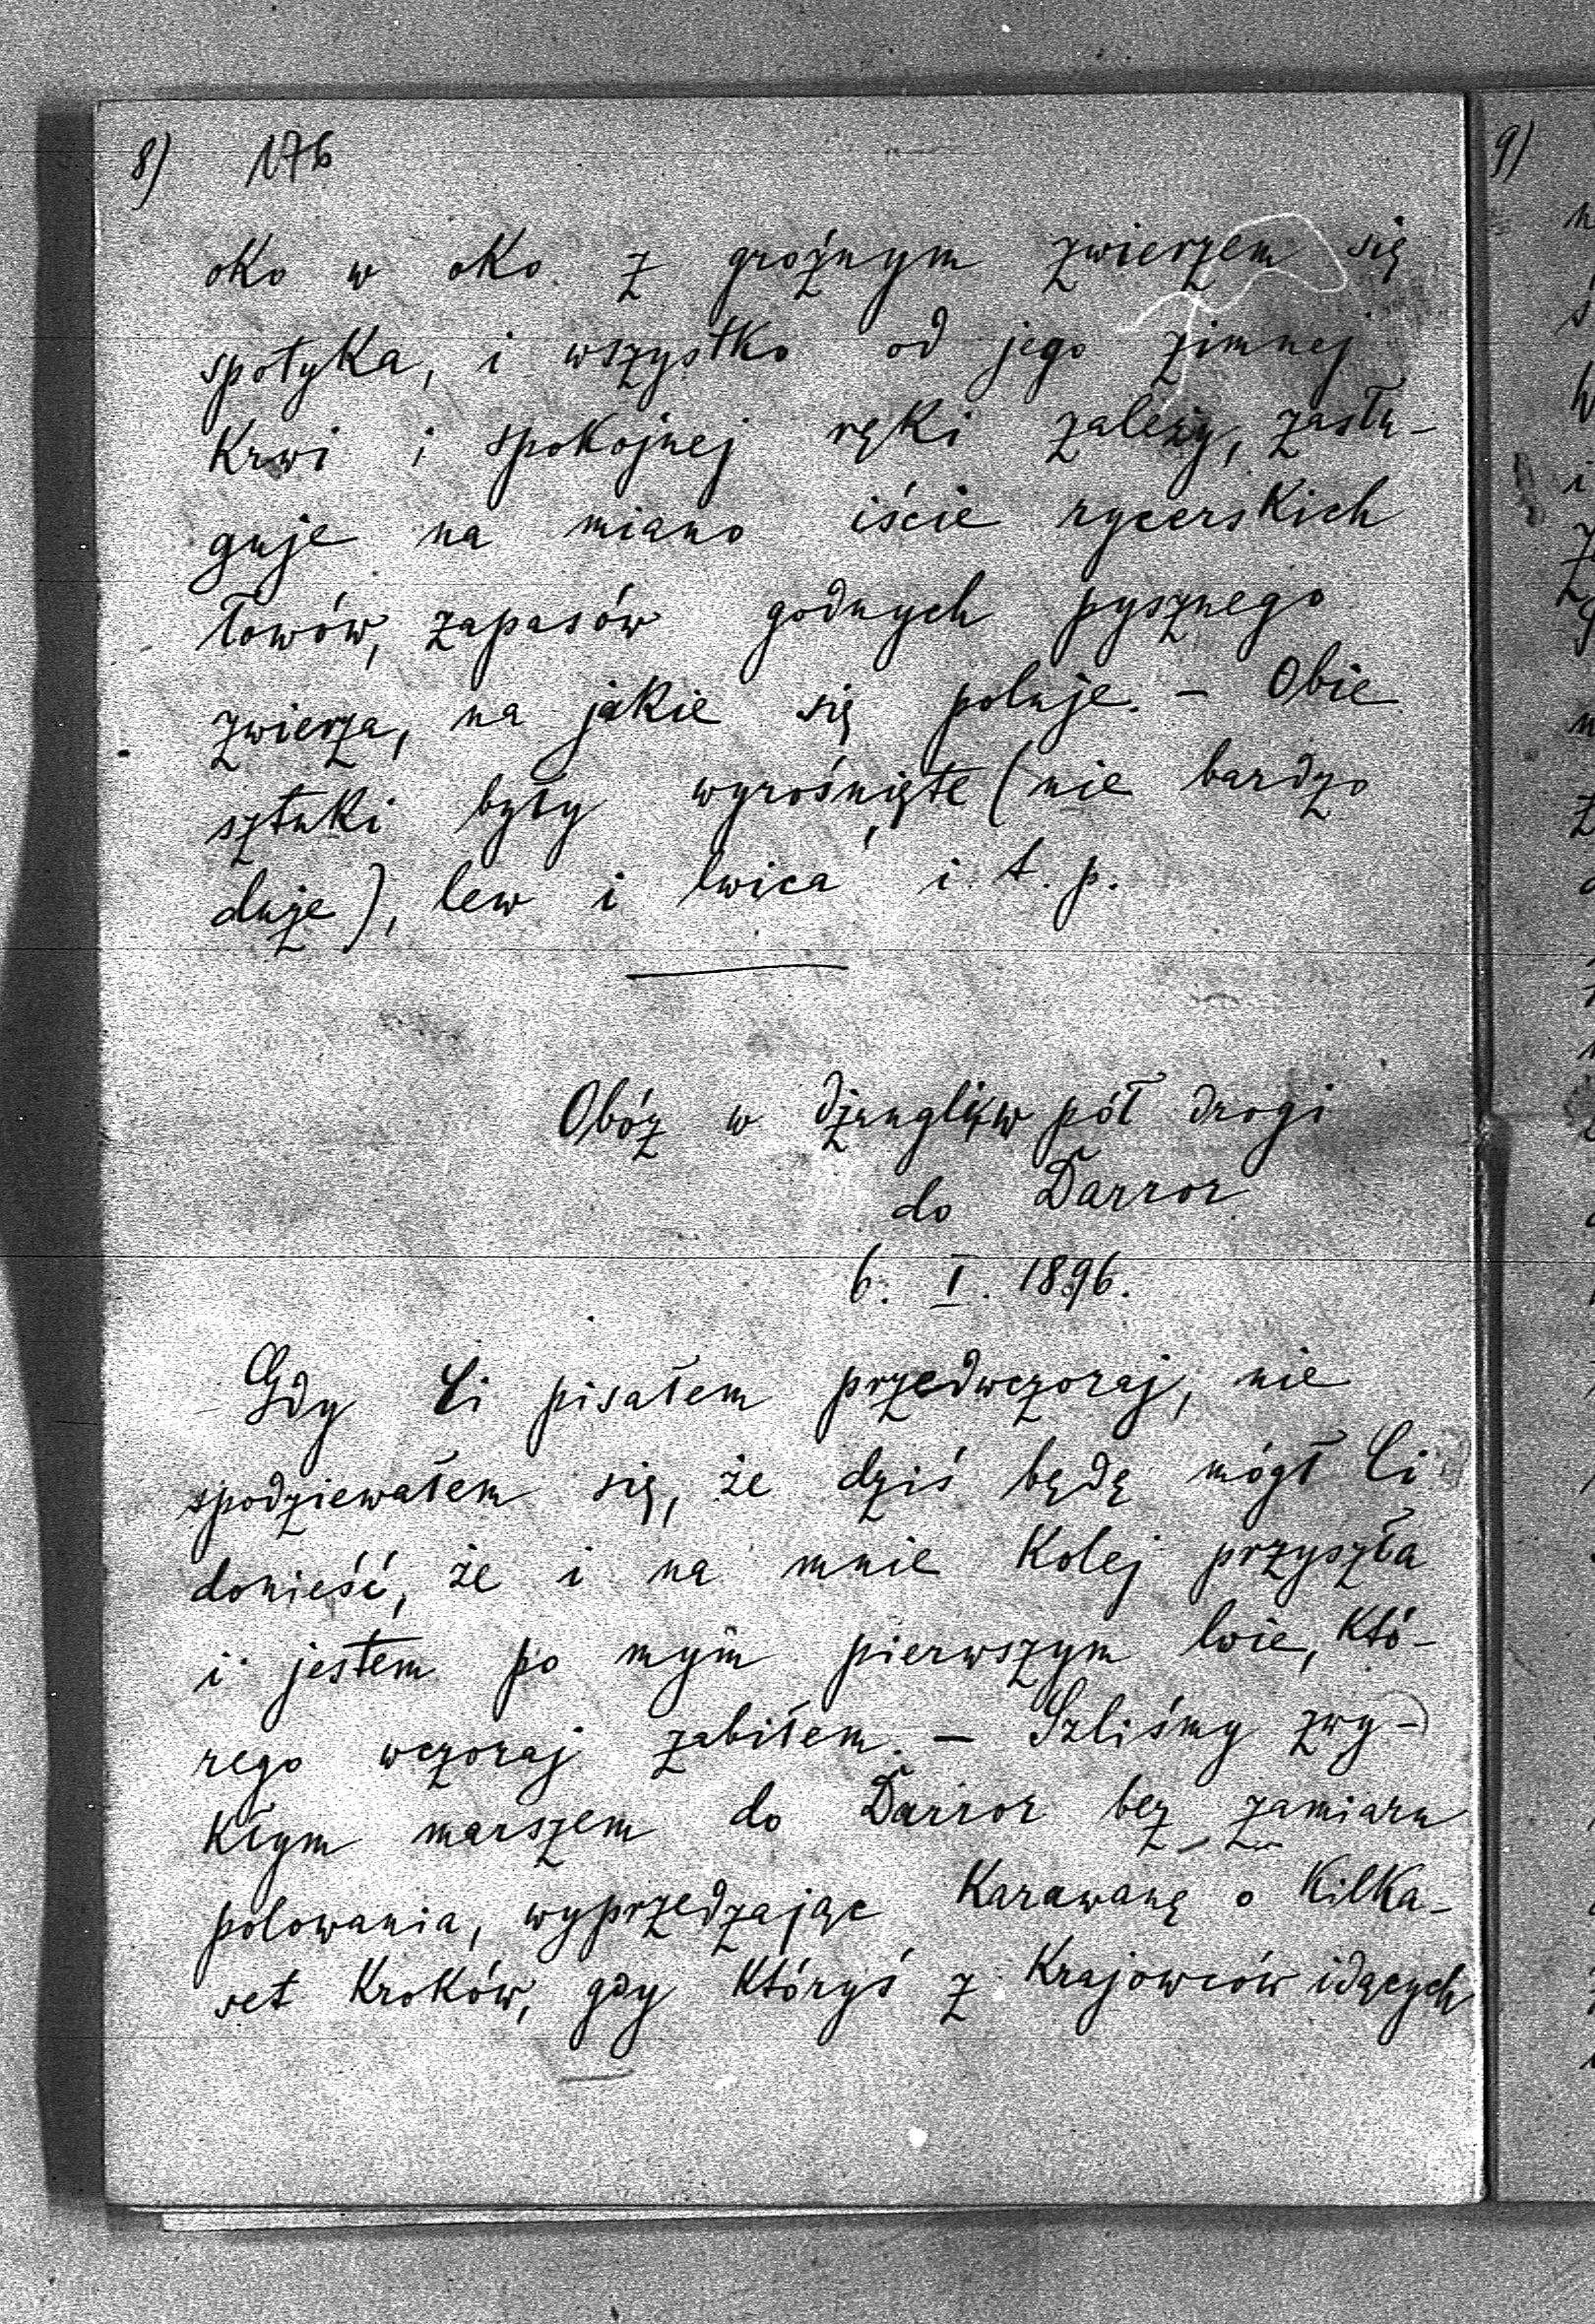 8) 176
oko w oko z groźnym zwierzem się
spotyka, i wszystko od jego zimnej
krwi i spokojnej ręki zależy, zasłu-
guje na miano iście rycerskich
łowów, zapasów godnych pysznego
zwierza, na jakie się poluje. - Obie
sztuki były wyrośnięte (nie bardzo
duże), lew i lwica i t. p.
Obóz w dżungli w pół drogi
do Darror
6. I. 1896.
Gdy Ci pisałem przedwczoraj, nie
spodziewałem się, że dziś będę mógł Ci
donieść, że i na mnie kolej przyszła
i jestem po mym pierwszym lwie, któ-
rego wczoraj zabiłem. - Szliśmy zwy-
kłym marszem do Darror bez zamiaru
polowania, wyprzedzając karawanę o kilka-
set kroków, gdy któryś z krajowców idących
9)